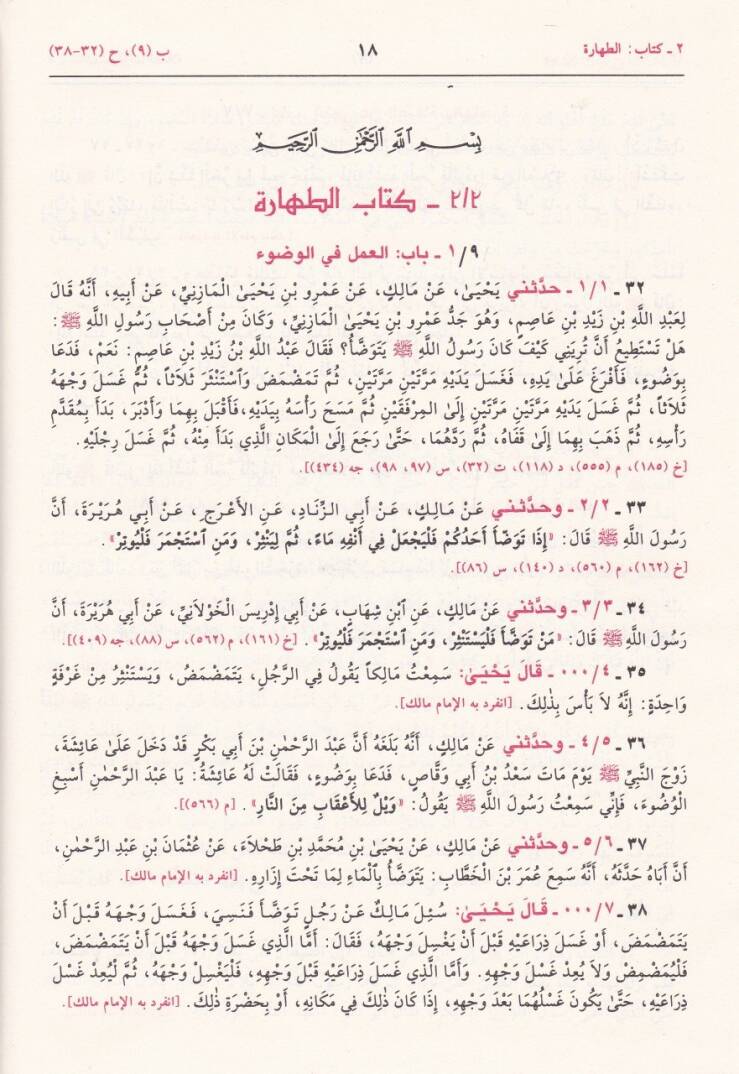 ٢ ـ كتاب: الطهارة ١٨ ب (٩)، ح (٣٢-٣٨)
بِسْمِ اللَّهِ الرَّحْمَٰنِ الرَّحِيمِ
٢/٢ ـ كتاب الطهارة
١/٩ ـ باب: العمل في الوضوء
٣٢ ـ ١/١ ـ حدَّثني يَحْيَىٰ، عَنْ مَالِكٍ، عَنْ عَمْرِو بْنِ يَحْيَىٰ الْمَازِنِيِّ، عَنْ أَبِيهِ، أَنَّهُ قَالَ
لِعَبْدِ اللَّهِ بْنِ زَيْدِ بْنِ عَاصِمٍ، وَهُوَ جَدُّ عَمْرِو بْنِ يَحْيَىٰ الْمَازِنِيِّ، وَكَانَ مِنْ أَصْحَابِ رَسُولِ اللَّهِ ﷺ :
هَلْ تَسْتَطِيعُ أَنْ تُرِيَنِي كَيْفَ كَانَ رَسُولُ اللَّهِ ﷺ يَتَوَضَّأُ؟ فَقَالَ عَبْدُ اللَّهِ بْنُ زَيْدِ بْنِ عَاصِمٍ: نَعَمْ، فَدَعَا
بِوَضُوءٍ، فَأَفْرَغَ عَلَىٰ يَدِهِ، فَغَسَلَ يَدَيْهِ مَرَّتَيْنِ مَرَّتَيْنِ، ثُمَّ تَمَضْمَضَ وَٱسْتَنْثَرَ ثَلَاثاً، ثُمَّ غَسَلَ وَجْهَهُ
ثَلَاثاً، ثُمَّ غَسَلَ يَدَيْهِ مَرَّتَيْنِ مَرَّتَيْنِ إِلَىٰ المِرْفَقَيْنِ ثُمَّ مَسَحَ رَأْسَهُ بِيَدَيْهِ،فَأَقْبَلَ بِهِمَا وَأَدْبَرَ، بَدَأَ بِمُقَدَّمِ
رَأْسِهِ، ثُمَّ ذَهَبَ بِهِمَا إِلَىٰ قَفَاهُ، ثُمَّ رَدَّهُمَا، حَتَّىٰ رَجَعَ إِلَىٰ الْمَكَانِ الَّذِي بَدَأَ مِنْهُ، ثُمَّ غَسَلَ رِجْلَيْهِ.
[خ (١٨٥)، م (٥٥٥)، د (١١٨)، ت (٣٢)، س (٩٧، ٩٨)، جه (٤٣٤)].
٣٣ ـ ٢/٢ ـ وحدَّثني عَنْ مَالِكٍ، عَنْ أَبِي الزِّنَادِ، عَنِ الأَعْرَجِ، عَنْ أَبِي هُرَيْرَةَ، أَنَّ
رَسُولَ اللَّهِ ﷺ قَالَ: «إِذَا تَوَضَّأَ أَحَدُكُمْ فَلْيَجْعَلْ فِي أَنْفِهِ مَاءً، ثُمَّ لِيَنْثِرْ، وَمَنِ ٱسْتَجْمَرَ فَلْيُوتِرْ».
[خ (١٦٢)، م (٥٦٠)، د (١٤٠)، س (٨٦)].
٣٤ ـ ٣/٣ ـ وحدَّثني عَنْ مَالِكٍ، عَنِ ٱبْنِ شِهَابٍ، عَنْ أَبِي إِدْرِيسَ الْخَوْلَانِيِّ، عَنْ أَبِي هُرَيْرَةَ، أَنَّ
رَسُولَ اللَّهِ ﷺ قَالَ: «مَنْ تَوَضَّأَ فَلْيَسْتَنْثِرْ، وَمَنِ ٱسْتَجْمَرَ فَلْيُوتِرْ» . [خ (١٦١)، م (٥٦٢)، س (٨٨)، جه (٤٠٩)].
٣٥ ـ ٠٠٠/٤ ـ قَالَ يَحْيَىٰ: سَمِعْتُ مَالِكاً يَقُولُ فِي الرَّجُلِ، يَتَمَضْمَضُ، وَيَسْتَنْثِرُ مِنْ غَرْفَةٍ
وَاحِدَةٍ: إِنَّهُ لاَ بَأْسَ بِذَلِكَ. [انفرد به الإمام مالك].
٣٦ ـ ٤/٥ ـ وحدَّثني عَنْ مَالِكٍ، أَنَّهُ بَلَغَهُ أَنَّ عَبْدَ الرَّحْمٰنِ بْنَ أَبِي بَكْرٍ قَدْ دَخَلَ عَلَىٰ عَائِشَةَ،
زَوْجِ النَّبِيِّ ﷺ يَوْمَ مَاتَ سَعْدُ بْنُ أَبِي وَقَّاصٍ، فَدَعَا بِوَضُوءٍ، فَقَالَتْ لَهُ عَائِشَةُ: يَا عَبْدَ الرَّحْمٰنِ أَسْبِغِ
الْوُضُوءَ، فَإِنِّي سَمِعْتُ رَسُولَ اللَّهِ ﷺ يَقُولُ: «وَيْلٌ لِلأَعْقَابِ مِنَ النَّارِ» . [م (٥٦٦)].
٣٧ ـ ٥/٦ ـ وحدَّثني عَنْ مَالِكٍ، عَنْ يَحْيَىٰ بْنِ مُحَمَّدِ بْنِ طَحْلاَءَ، عَنْ عُثْمَانَ بْنِ عَبْدِ الرَّحْمٰنِ،
أَنَّ أَبَاهُ حَدَّثَهُ، أَنَّهُ سَمِعَ عُمَرَ بْنَ الْخَطَّابِ: يَتَوَضَّأُ بِٱلْمَاءِ لِمَا تَحْتَ إِزَارِهِ. [انفرد به الإمام مالك].
٣٨ ـ ٠٠٠/٧ ـ قَالَ يَحْيَىٰ: سُئِلَ مَالِكٌ عَنْ رَجُلٍ تَوَضَّأَ فَنَسِيَ، فَغَسَلَ وَجْهَهُ قَبْلَ أَنْ
يَتَمَضْمَضَ، أَوْ غَسَلَ ذِرَاعَيْهِ قَبْلَ أَنْ يَغْسِلَ وَجْهَهُ، فَقَالَ: أَمَّا الَّذِي غَسَلَ وَجْهَهُ قَبْلَ أَنْ يَتَمَضْمَضَ،
فَلْيُمَضْمِضْ وَلاَ يُعِدْ غَسْلَ وَجْهِهِ. وَأَمَّا الَّذِي غَسَلَ ذِرَاعَيْهِ قَبْلَ وَجْهِهِ، فَلْيَغْسِلْ وَجْهَهُ، ثُمَّ لْيُعِدْ غَسْلَ
ذِرَاعَيْهِ، حَتَّىٰ يَكُونَ غَسْلُهُمَا بَعْدَ وَجْهِهِ، إِذَا كَانَ ذٰلِكَ فِي مَكَانِهِ، أَوْ بِحَضْرَةِ ذٰلِكَ. [انفرد به الإمام مالك].